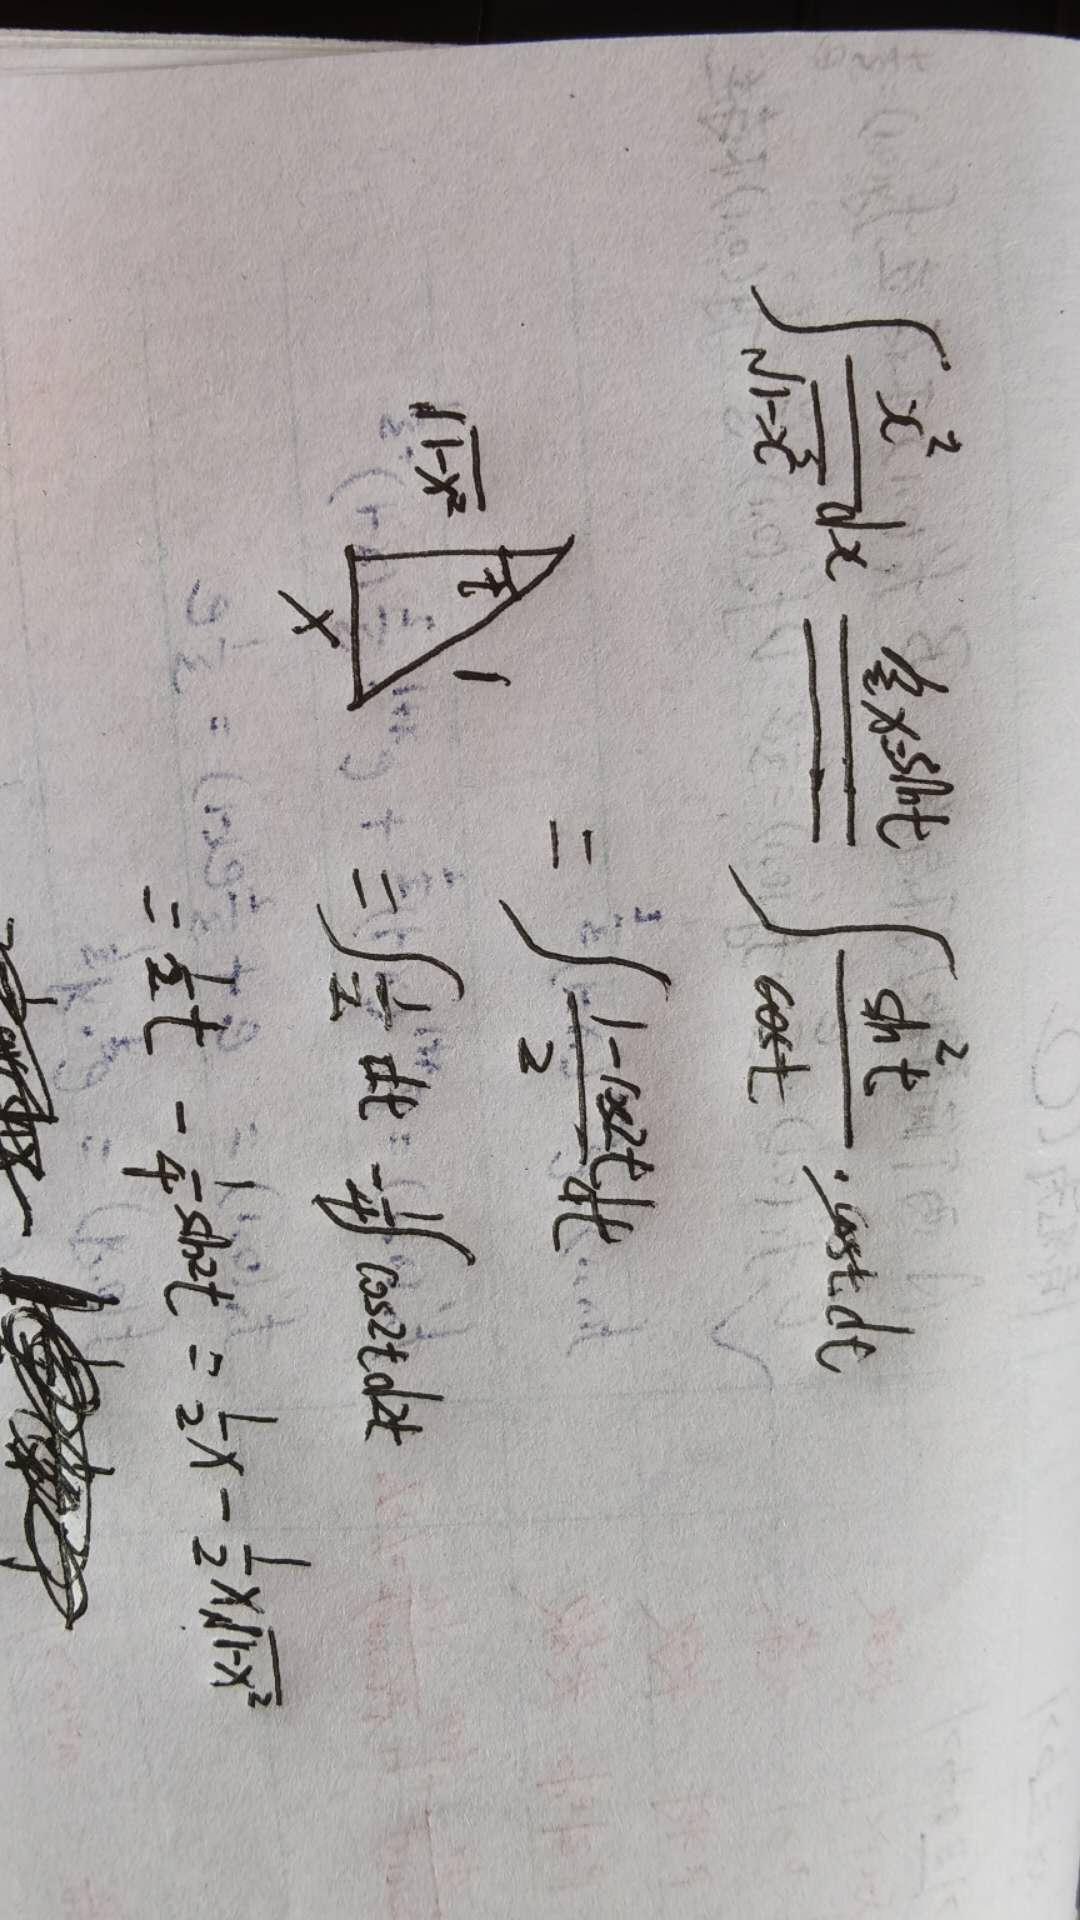 ∫ x²/√(1-x²) dx ==令x=sint== ∫ sin²t/cost · cost·dt
= ∫ (1-cos2t)/2 dt
√(1-x²) t 1 x
= ∫ 1/2 dt - 1/4 ∫ cos2t d2t
= 1/2 t - 1/4 sin2t = 1/2 x - 1/2 x√(1-x²)